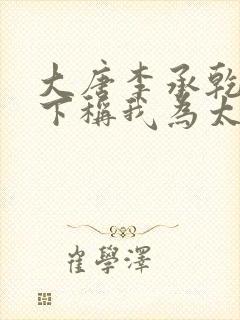 大唐李承乾
下稱我為太
崔學澤